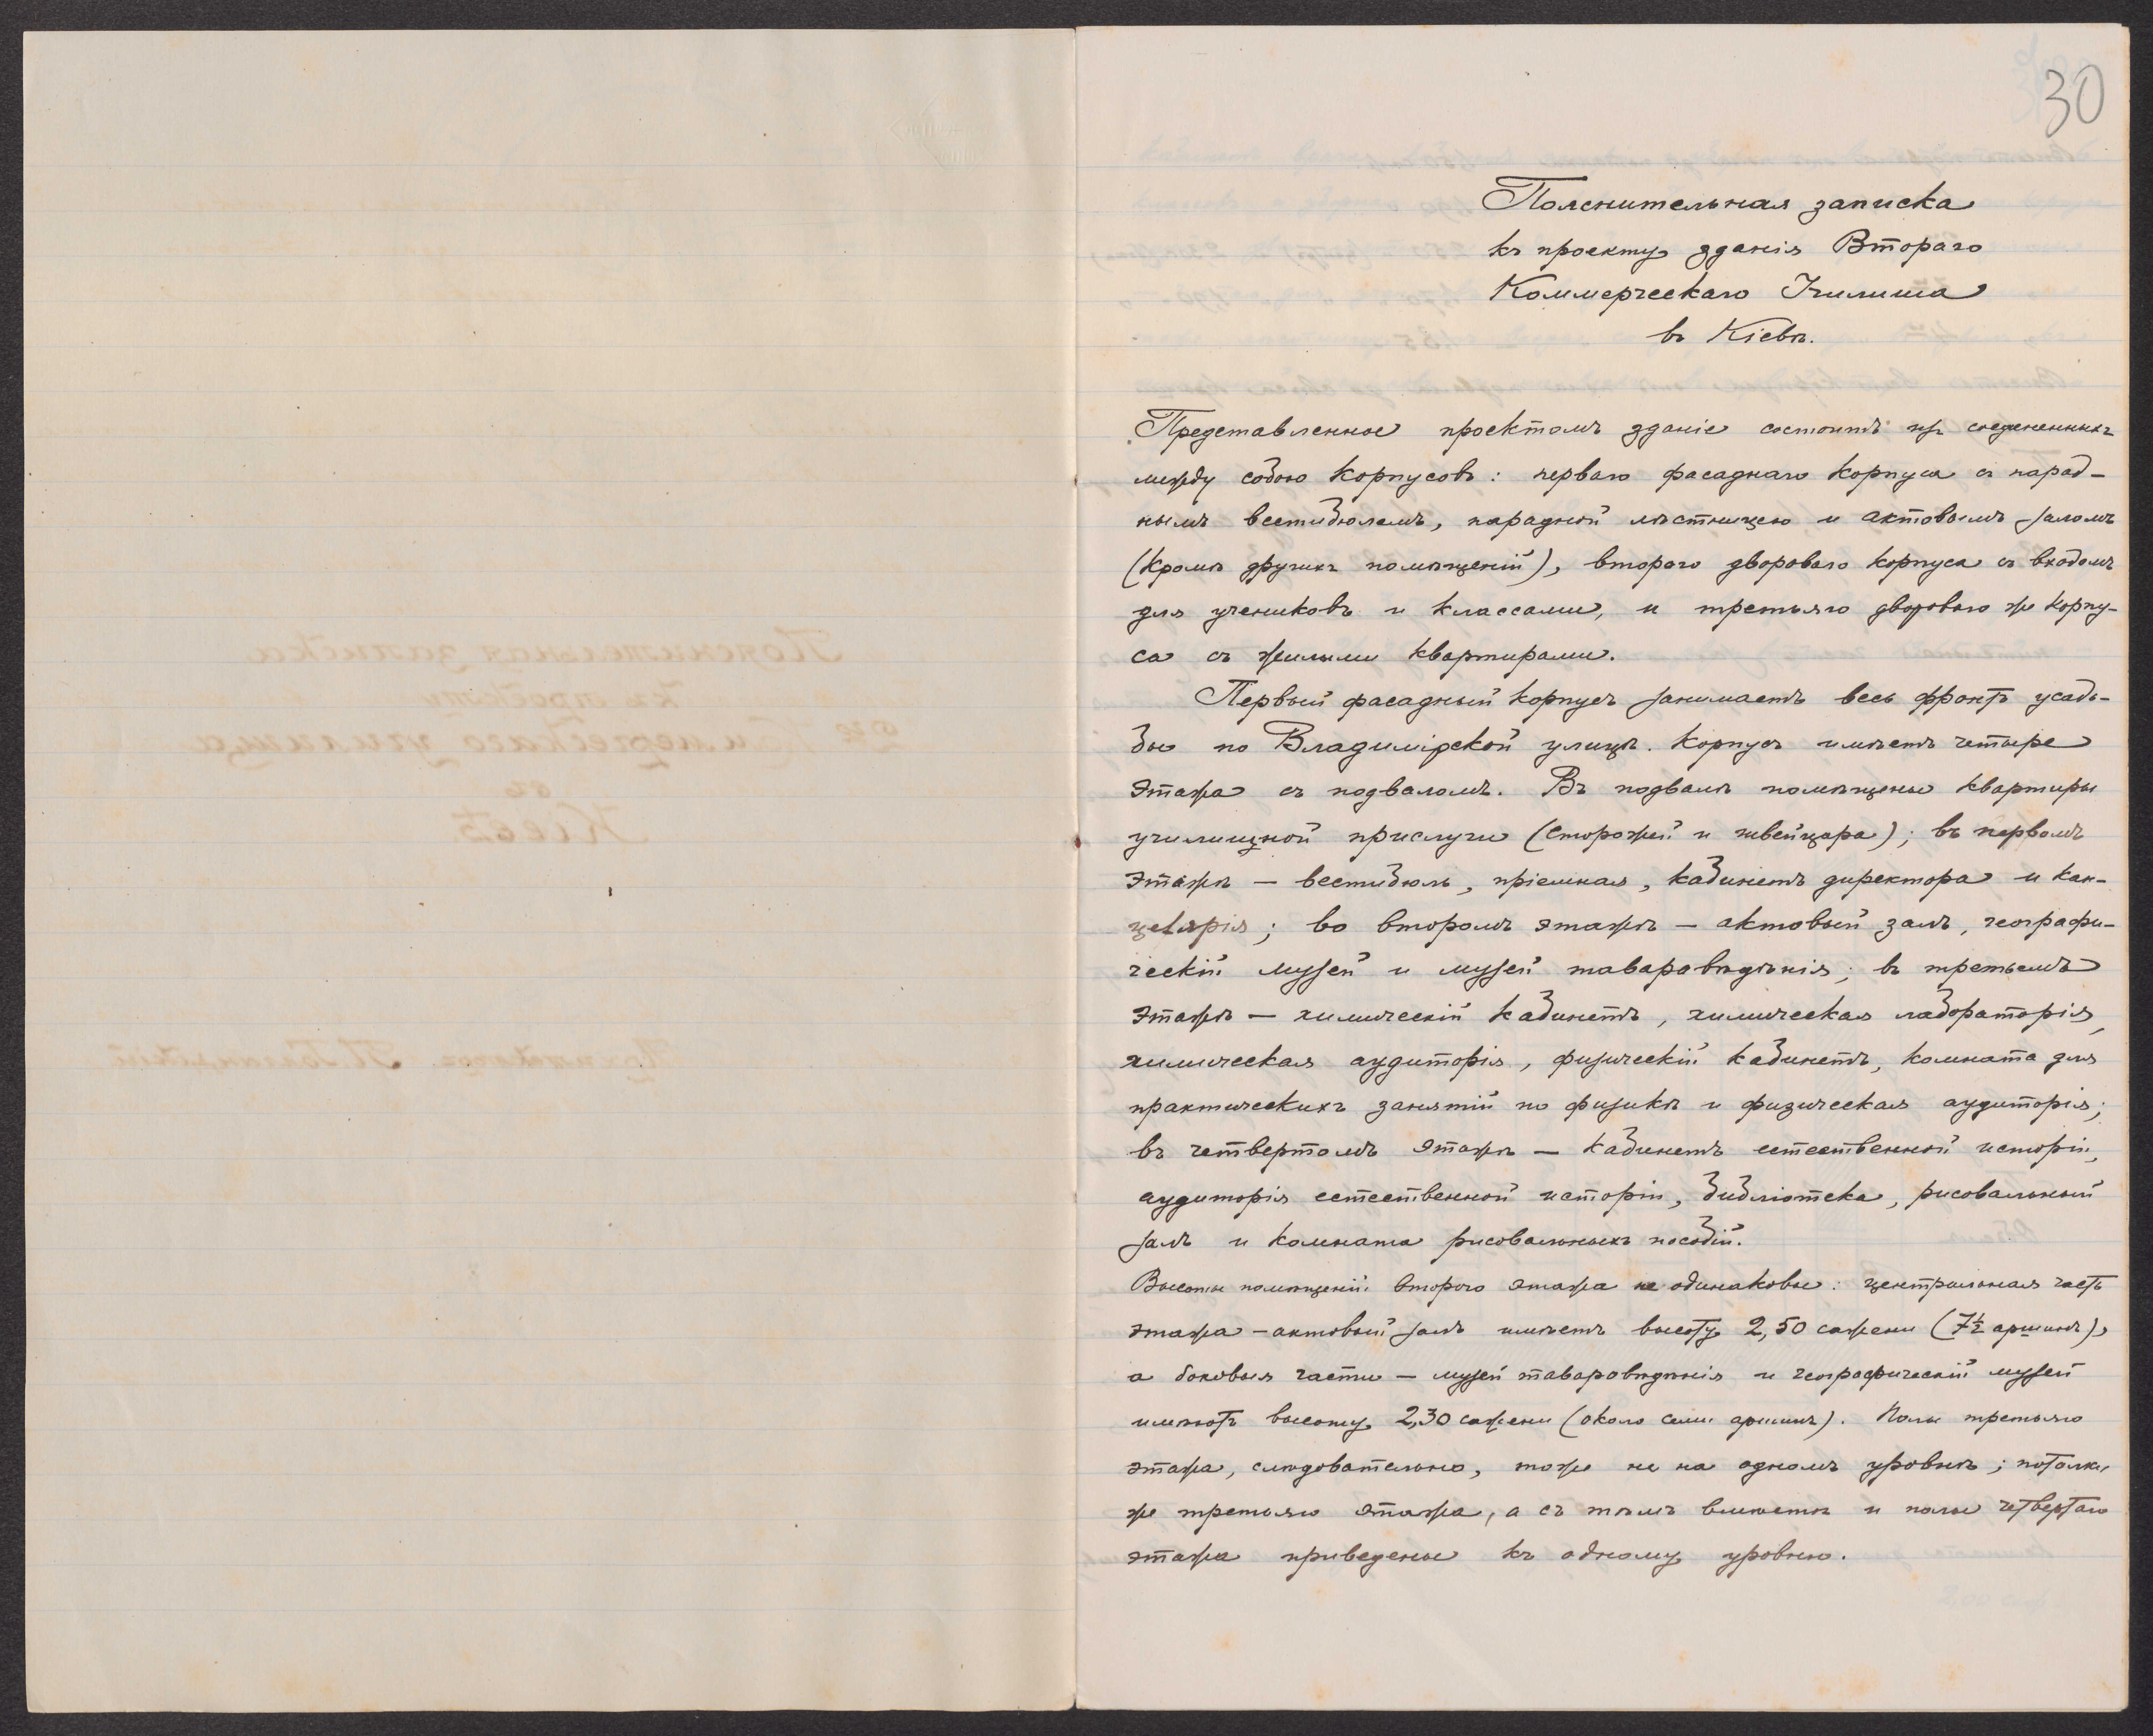 30
Пояснительная записка
къ проекту зданія Второго
Коммерческаго Училища
въ Кіевѣ.
Представленное проектомъ зданіе состоитъ изъ соединенныхъ
между собою корпусовъ: перваго фасаднаго корпуса съ парад-
нымъ вестибюлемъ, парадной лѣстницею и актовымъ заломъ
(кромѣ другихъ помѣщеній), второго двороваго корпуса съ входомъ
для учениковъ и классами, и третьяго двороваго же корпу-
са съ жилыми квартирами.
Первый фасадный корпусъ занимаетъ весь фронтъ усадь-
бы по Владимірской улицѣ. Корпусъ имѣетъ четыре
этажа съ подваломъ. Въ подвалѣ помѣщены квартиры
училищной прислуги (сторожей и швейцара); въ первомъ
этажѣ — вестибюль, пріемная, кабинетъ директора и кан-
целярія; во второмъ этажѣ — актовый залъ, географи-
ческій музей и музей товаровѣдѣнія; въ третьемъ
этажѣ — химическій кабинетъ, химическая лабораторія,
химическая аудиторія, физическій кабинетъ, комната для
практическихъ занятій по физикѣ и физическая аудиторія;
въ четвертомъ этажѣ — кабинетъ естественной исторіи,
аудиторія естественной исторіи, библіотека, рисовальный
залъ и комната рисовальныхъ пособій.
Высоты помѣщеній второго этажа не одинаковы: центральная часть
этажа - актовый залъ имѣетъ высоту 2,50 сажени (7½ аршинъ),
а боковыя части — музей товаровѣдѣнія и географическій музей
имѣютъ высоту 2,30 сажени (около семи аршинъ). Полы третьяго
этажа, слѣдовательно, тоже не на одномъ уровнѣ; потолки
же третьяго этажа, а съ тѣмъ вмѣстѣ и полы четвертаго
этажа приведены къ одному уровню.